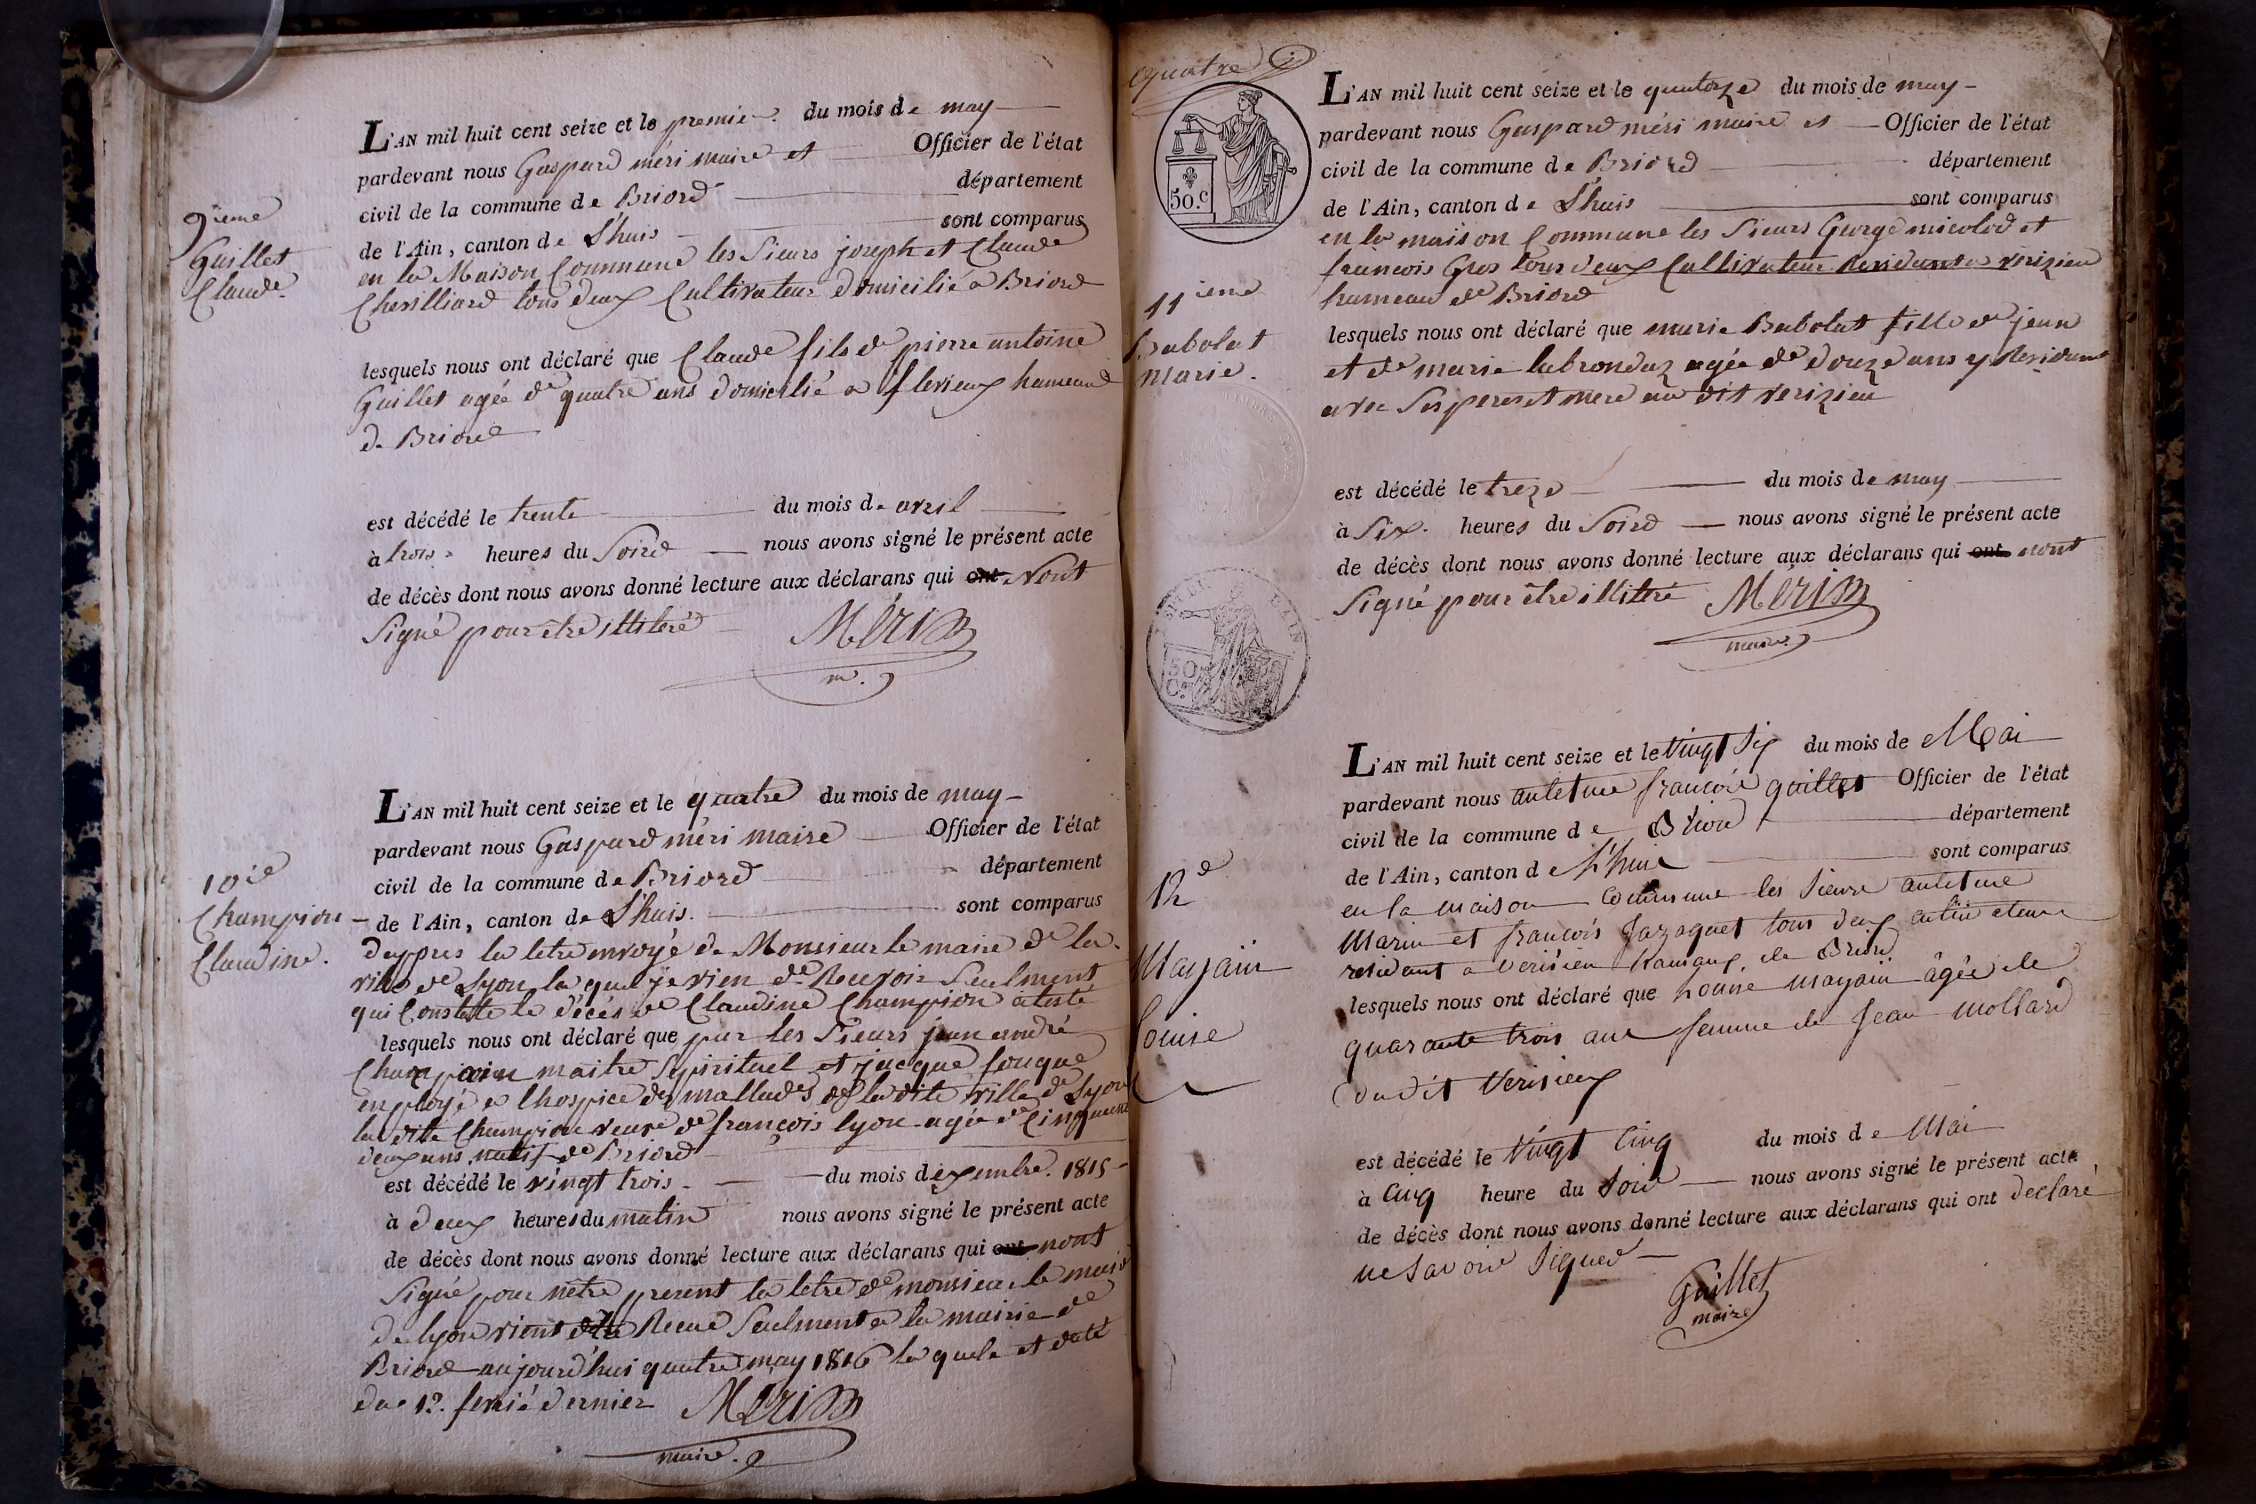 9ieme
Guillet
Claude
L'AN mil huit cent seize et le premier du mois de may
pardevant nous Gaspard méri maire et Officier de l'état
civil de la commune de Briord département
de l'Ain, canton de L'huis sont comparus
en la Maison Commune les Sieurs joseph et Claude
Chevilliard tous deux Cultivateur domicilié a Briord
lesquels nous ont déclaré que Claude fils de pierre antoine
Guillet agée de quatre ans domicilié a flevieux hameaud
de Briord
est décédé le trente du mois de avril
à trois heures du Soird nous avons signé le présent acte
de décès dont nous avons donné lecture aux déclarans qui ont nont
Signé pour être illiteré
MÉRI
m.
10ie
Champion
Claudine.
L'AN mil huit cent seize et le quatre du mois de may
pardevant nous Gaspard méri maire Officier de l'état
civil de la commune de Briord département
de l'Ain, canton de L'huis. sont comparus
dappres la letre envoyé de Monsieur le maire de la
ville de Lyon la quel je vien de Recevoir Seulment
qui Constate le décès de Claudine Champion atesté
lesquels nous ont déclaré que par les Sieurs jean andré
Champion maitre Spirituel et jacque fouque
employé a lhospice des mallades de la dite ville de Lyon
la dite Champion veuve de françois lyon agée de Cinquente
deux ans natif de Briord
est décédé le vingt trois du mois dexembre. 1815
à deux heures du matin nous avons signé le présent acte
de décès dont nous avons donné lecture aux déclarans qui ont nont
Signé pour nêtre present la letre de monsieur le maire
de lyon vient dêtre Recue Seulment a la mairie de
Briord aujourd'hui quatre may 1816 la quele et daté
du 12. fevrié dernier MÉRI
maire.
quatre
50.c
11ieme
Babolat
Marie.
50
C.es
L'AN mil huit cent seize et le quatorze du mois de may
pardevant nous Gaspard méri maire et Officier de l'état
civil de la commune de Briord département
de l'Ain, canton de L'huis sont comparus
en la maison Commune les Sieurs George micolod et
françois Gros tous deux Cultivateur Residant a vérizieu
hameau de Briord
lesquels nous ont déclaré que marie Babolat fille de jean
et de marie labrondaz agée de douze ans y Residant
avec Ses peres et mere au dit verizieu
est décédé le treze du mois de may
à Six heures du Soird nous avons signé le présent acte
de décès dont nous avons donné lecture aux déclarans qui ont nont
Signé pour être illittré MÉRI
maire
12e
Mayain
Louise
L'AN mil huit cent seize et le Vingt Six du mois de Mai
pardevant nous antelme françois guillet Officier de l'état
civil de la commune de Briord département
de l'Ain, canton de L'huis sont comparus
en la maison Commune les Sieurs antelme
Marin et françois Jaraquet tous deux cultivateurs
residant a Verisieu hamaux de Briord
lesquels nous ont déclaré que Louise mayain âgée de
quarante trois ans femme de Jean Mollard
du dit Verisieux
est décédé le Vingt Cinq du mois de Mai
à Cinq heure du Soir nous avons signé le présent acte
de décès dont nous avons donné lecture aux déclarans qui ont declaré
ne savoir Signer
Guillet
maire